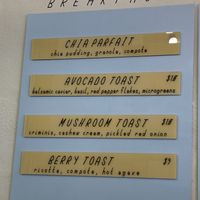 BREAKFAST
CHIA PARFAIT
chia pudding, granola, compote
AVOCADO TOAST $10
balsamic caviar, basil, red pepper flakes, microgreens
MUSHROOM TOAST $10
criminis, cashew cream, pickled red onion
BERRY TOAST $9
ricotta, compote, hot agave